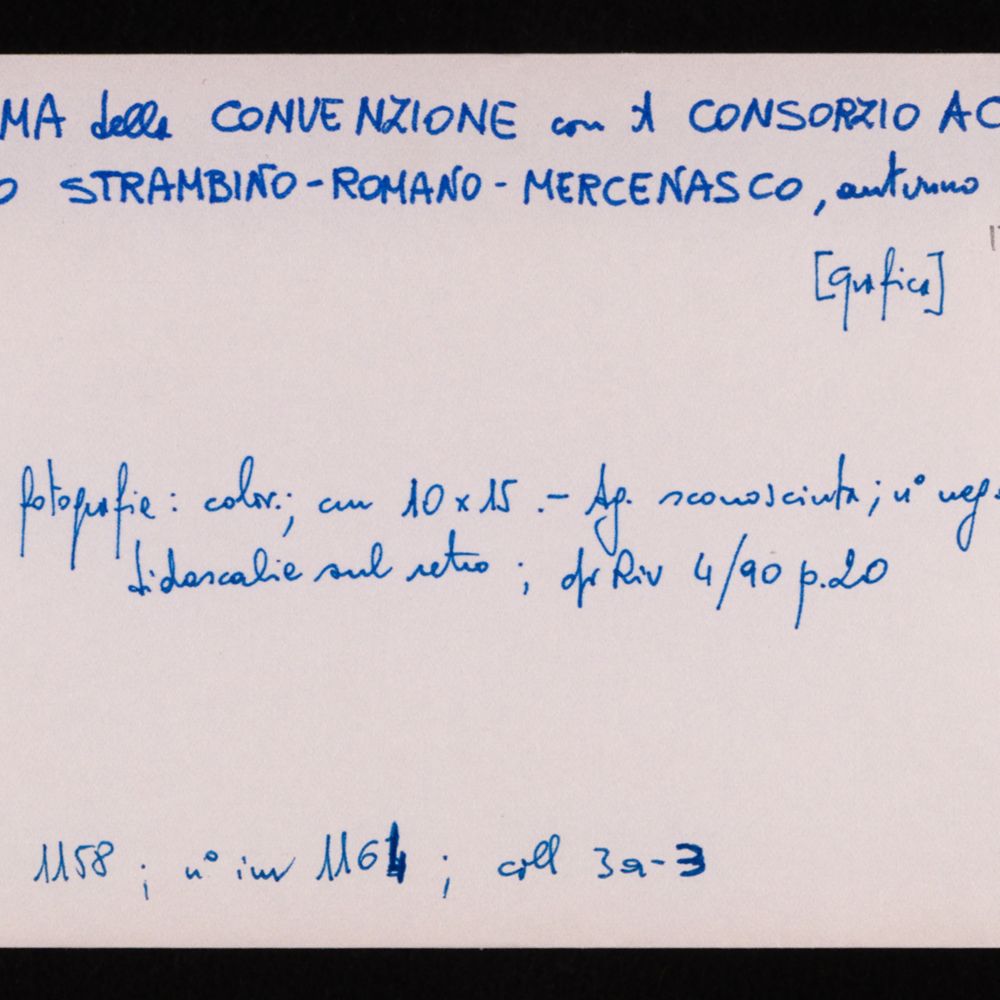 MA della CONVENZIONE con il CONSORZIO AC
O STRAMBINO-ROMANO-MERCENASCO, autunno
[grafica]
fotografie: color.; cm 10x15 .- Ag. sconosciuta; n° neg.
didascalie sul retro; cfr Riv 4/90 p.20
1158; n° inv 1164; coll 3a-3